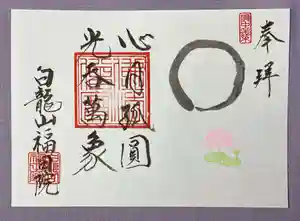 奉拝
心月孤圓
光吞萬象
白龍山福圓院